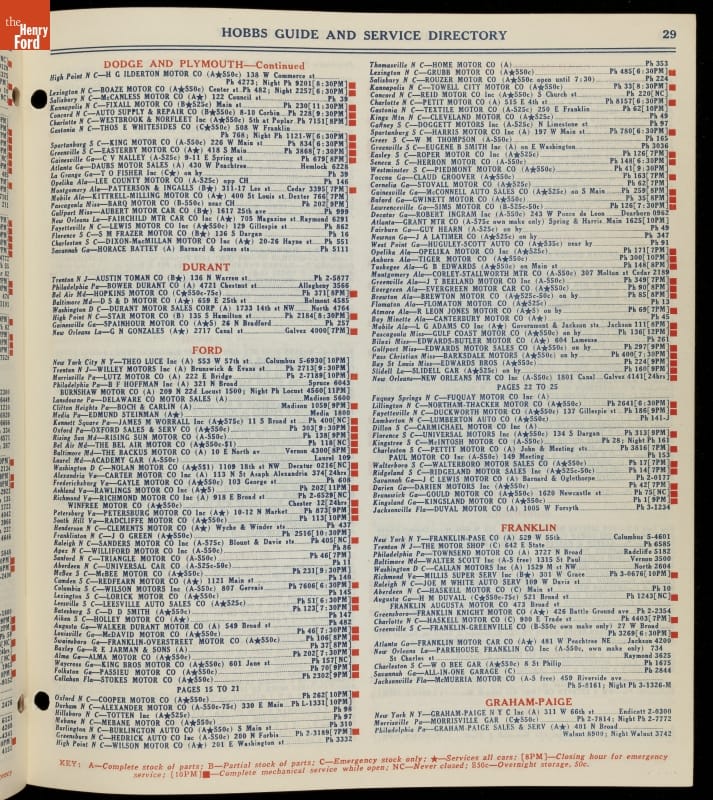 the
Henry
Ford
HOBBS GUIDE AND SERVICE DIRECTORY 29
DODGE AND PLYMOUTH—Continued
High Point N C—H G ILDERTON MOTOR CO (A★550c) 138 W Commerce st
Ph 4273; Night Ph 9201[8:30PM]
Lexington N C—BOAZE MOTOR CO (A★550c) Center st. Ph 482; Night 2257[6:30PM]
Salisbury N C—McCANLESS MOTOR CO (A★) 122 Council st Ph 39
Kannapolis N C—FIXALL MOTOR CO (B★525c) Main st Ph 230[11:30PM]
Concord N C—AUTO SUPPLY & REPAIR CO (B★550c) 8-10 Corbin Ph 228[9:30PM]
Charlotte N C—WESTBROOK & NORFLEET Inc (A★550c) 5th at Poplar Ph 7151[8PM]
Gastonia N C—THOS E WHITESIDES CO (C★550c) 508 W Franklin
Ph 768; Night Ph 1121-W[6:30PM]
Spartanburg S C—KING MOTOR CO (A-550c) 226 W Main st Ph 834[6:30PM]
Greenville S C—EASTERBY MOTOR CO (A★) 418 S Main Ph 3868[7:30PM]
Gainesville Ga—C V NALLEY (A-525c) 9-11 E Spring st Ph 679[8PM]
Atlanta Ga—DAUBS MOTOR SALES (A) 430 W Peachtree Hemlock 6228
La Grange Ga—T O FISHER Inc (C★) on by Ph 39
Opelika Ala—LEE COUNTY MOTOR CO (A-525c) opp CH Ph 146
Montgomery Ala—PATTERSON & INGALLS (B★) 311-17 Lee st Cedar 3395[7PM]
Mobile Ala—KITTRELL-MILLING MOTOR CO (A★) 400 St Louis st Dexter 766[7PM]
Pascagoula Miss—BARQ MOTOR CO (B-550c) near CH Ph 202[9PM]
Gulfport Miss—AUBERT MOTOR CAR CO (B★) 1617 25th ave Ph 999
New Orleans La—FAIRCHILD MTR CAR CO (A★) 705 Magazine st Raymond 6291
Fayetteville N C—LEWIS MOTOR CO (A★550c) 129 Gillespie st Ph 862
Florence S C—S M FRAZER MOTOR CO (B★) 136 S Dargan Ph 16
Charleston S C—DIXON-MacMILLAN MOTOR CO (A★) 20-26 Hayne st Ph 551
Savannah Ga—HORACE BATTEY (A) Barnard & Jones sts Ph 5111
DURANT
Trenton N J—AUSTIN TOMAN CO (B★) 136 N Warren st Ph 2-5877
Philadelphia Pa—BOWER DURANT CO (A) 4721 Chestnut st Allegheny 3566
Bel Air Md—HOPKINS MOTOR CO (C★550c-75c) Ph 371[8PM]
Baltimore Md—D S & D MOTOR CO (A★) 659 E 25th st Belmont 4585
Washington D C—DURANT MOTOR SALES CORP (A) 1733 14th st NW North 4764
High Point N C—STAR MOTOR CO (B) 135 S Hamilton st Ph 2184[6:30PM]
Gainesville Ga—SPAINHOUR MOTOR CO (A★5) 26 N Bradford Ph 257
New Orleans La—G N GONZALES (A★) 2717 Canal st Galvez 4000[7PM]
FORD
New York City N Y—THEO LUCE Inc (A) 533 W 57th st Columbus 5-6930[10PM]
Trenton N J—WILEY MOTORS Inc (A) Brunswick & Evans st Ph 2713[9:30PM]
Morrisville Pa—LUTZ MOTOR CO (A) 222 E Bridge Ph 2-7189[10PM]
Philadelphia Pa—B F HOFFMAN Inc (A) 321 N Broad Spruce 6043
BURNSHAW MOTOR CO (A) 209 N 22d Locust 1500; Night Ph Locust 4560[11PM]
Lansdowne Pa—DELAWARE CO MOTOR SALES (A) Madison 5600
Clifton Heights Pa—BOCH & CARLIN (A) Madison 1059[9PM]
Media Pa—EDMUND STEINMAN (A★) Media 1800
Kennett Square Pa—JAMES M WORRALL Inc (A★575c) 11 S Broad st Ph 400[NC]
Oxford Pa—OXFORD SALES & SERV CO (A★550c) Ph 303[9:30PM]
Rising Sun Md—RISING SUN MOTOR CO (A-550c) Ph 138[9PM]
Bel Air Md—THE BEL AIR MOTOR CO (A★550c-$1) Ph 110[NC]
Baltimore Md—THE BACKUS MOTOR CO (A) 10 E North av Vernon 4300[8PM]
Laurel Md—ACADEMY GAR (A-550c) Laurel 109
Washington D C—NOLAN MOTOR CO (A★5$1) 1109 18th st NW Decatur 0216[NC]
Alexandria Va—CARTER MOTOR CO (A) 113 N St Asaph Alexandria 374[24hrs]
Fredericksburg Va—GAYLE MOTOR CO (A★550c) 103 George st Ph 608
Ashland Va—RAWLINGS MOTOR Inc (A★5) Ph 202[11PM]
Richmond Va—RICHMOND MOTOR CO (A) 918 E Broad st Ph 2-6529[NC]
WINFREE MOTOR CO (A★550c) Chester 12[24hrs]
Petersburg Va—PETERSBURG MOTOR CO Inc (A★) 10-12 N Market Ph 873[9PM]
South Hill Va—RADCLIFFE MOTOR CO (A★550c) Ph 113[10PM]
Henderson N C—CLEMENTS MOTOR CO (A★) Wyche & Winder sts Ph 437
Franklinton N C—J O GREEN (A★550c) Ph 2516[10:30PM]
Raleigh N C—SANDERS MOTOR CO Inc (A-575c) Blount & Davie sts Ph 405[NC]
Apex N C—WILLIFORD MOTOR CO Inc (A-550c) Ph 86
Sanford N C—TRIANGLE MOTOR CO (A-550c) Ph 46[7PM]
Aberdeen N C—UNIVERSAL CAR CO (A-525c-50c) Ph 11
McBee S C—McBEE MOTOR CO (A★550c) Ph 231[9:30PM]
Camden S C—REDFEARN MOTOR CO (A★) 1121 Main st Ph 140
Columbia S C—WILSON MOTORS Inc (A-550c) 807 Gervais Ph 7606[6:30PM]
Lexington S C—LORICK MOTOR CO (A★550c) Ph 145
Leesville S C—LEESVILLE AUTO SALES CO (A★525c) Ph 51[6:30PM]
Batesburg S C—D D SMITH (A★550c) Ph 123[7:30PM]
Aiken S C—HOLLEY MOTOR (A★) Ph 147
Augusta Ga—WALKER DURANT MOTOR CO (A) 549 Broad st Ph 482
Louisville Ga—McDAVID MOTOR CO (A★550c) Ph 46[7:30PM]
Swainsboro Ga—FRANKLIN-OVERSTREET MOTOR CO (A★550c) Ph 106[8PM]
Baxley Ga—R E JARMAN & SONS (A) Ph 37[8PM]
Alma Ga—ALMA MOTOR CO (A★550c) Ph 202[7:30PM]
Waycross Ga—KING BROS MOTOR CO (A★550c) 601 June st Ph 157[NC]
Folkston Ga—PASSIEU MOTOR CO (A★550c) Ph 70[9PM]
Callahan Fla—STOKES MOTOR CO (A★550c) Ph 2302[9PM]
PAGES 15 TO 21
Oxford N C—COOPER MOTOR CO (A★550c) Ph 262[10PM]
Durham N C—ALEXANDER MOTOR CO (A-550c-75c) 330 E Main Ph L-1331[10PM]
Hillsboro N C—TOTTEN Inc (A★525c) Ph 89
Mebane N C—MEBANE MOTOR CO (A★550c) Ph 97
Burlington N C—BURLINGTON AUTO CO (A★550c) S Main st Ph 310
Greensboro N C—HEDRICK AUTO CO Inc (A-550c) 200 N Forbis Ph 2-3189[7PM]
High Point N C—WILSON MOTOR CO (A★) 201 E Washington st Ph 3332
Thomasville N C—HOME MOTOR CO (A) Ph 353
Lexington N C—GRUBB MOTOR CO (A★550c) Ph 485[6:30PM]
Salisbury N C—ROUZER MOTOR CO (A★550c open until 7:30) Ph 224
Kannapolis N C—TOWELL CITY MOTOR CO (A★550c) Ph 33[8:30PM]
Concord N C—REID MOTOR CO Inc (A★550c) S Church st Ph 220[NC]
Charlotte N C—PETIT MOTOR CO (A) 515 E 4th st Ph 8157[6:30PM]
Gastonia N C—TEXTILE MOTOR CO (A-525c) 250 E Franklin Ph 62[10PM]
Kings Mtn N C—CLEVELAND MOTOR CO (A★525c) Ph 49
Gaffney S C—DOGGETT MOTORS Inc (A-525c) N Limestone st Ph 97
Spartanburg S C—HARRIS MOTOR CO (A) 197 W Main st Ph 780[6:30PM]
Greer S C—W M THOMPSON (A-550c) Ph 165
Greenville S C—EUGENE B SMITH Inc (A) on E Washington Ph 3036
Easley S C—ROPER MOTOR CO Inc (A★525c) Ph 126[7PM]
Seneca S C—HERRON MOTOR CO (A-550c) Ph 148[6:30PM]
Westminster S C—PIEDMONT MOTOR CO (A★550c) Ph 41[9:30PM]
Toccoa Ga—CLAUD GROOVER (A★550c) Ph 163[7PM]
Cornelia Ga—STOVALL MOTOR CO (A★525c) Ph 62[7PM]
Gainesville Ga—McCONNELL AUTO SALES CO (A★525c) on S Main Ph 259[8PM]
Buford Ga—GWINETT MOTOR CO (A★550c) Ph 35[8PM]
Lawrenceville Ga—SIMS MOTOR CO (B-525c-50c) Ph 126[7:30PM]
Decatur Ga—ROBERT INGRAM INC (A-550c) 243 W Ponce de Leon Dearborn 0962
Atlanta—GRANT MTR CO (A-575c own make only) Spring & Harris Main 1625[10PM]
Fairburn Ga—GUY HEARN (A-525c) on by Ph 49
Newnan Ga—J A LATIMER CO (A★525c) on by Ph 347
West Point Ga—HUGULEY-SCOTT AUTO CO (B★535c) near by Ph 91
Opelika Ala—OPELIKA MOTOR CO Inc (A★525c) Ph 171[7PM]
Auburn Ala—TIGER MOTOR CO (A★550c) Ph 300[10PM]
Tuskegee Ala—G B EDWARDS (A★550c) on Main st Ph 148[8PM]
Montgomery Ala—CORLEY-STALLWORTH MTR CO (A-550c) 307 Molton st Cedar 2189
Greenville Ala—J T BREELAND MOTOR CO Inc (A-550c) Ph 349[7PM]
Evergreen Ala—EVERGREEN MOTOR CAR CO (A★550c) Ph 90[8PM]
Brewton Ala—BREWTON MOTOR CO (A-525c-50c) on by Ph 85[8PM]
Flomaton Ala—FLOMATON MOTOR CO (A★525c) Ph 13
Atmore Ala—R LEON JONES MOTOR CO (A★5) on by Ph 69[7PM]
Bay Minette Ala—CANTERBURY MOTOR CO (A★) Ph 45
Mobile Ala—L G ADAMS CO Inc (A★) Government & Jackson sts Jackson 111[8PM]
Pascagoula Miss—GULF COAST MOTOR CO (A★550c) on by Ph 136[12PM]
Biloxi Miss—EDWARDS-BUTLER MOTOR CO (A★) 604 Lameuse Ph 261
Gulfport Miss—EDWARDS MOTOR SALES CO (A★550c) on by Ph 297[9PM]
Pass Christian Miss—BARKSDALE MOTORS (A★550c) on by Ph 400[7:30PM]
Bay St Louis Miss—EDWARDS BROS (A★550c) Ph 224[9PM]
Slidell La—SLIDELL GAR (A★525c) on by Ph 160[9PM]
New Orleans—NEW ORLEANS MTR CO Inc (A-550c) 1801 Canal Galvez 4141[24hrs]
PAGES 22 TO 25
Fuquay Springs N C—FUQUAY MOTOR CO Inc (A)
Lillington N C—NORTHAM-THRACKER MOTOR CO (A★550c) Ph 2641[6:30PM]
Fayetteville N C—DUCKWORTH MOTOR CO (A★550c) 137 Gillespie st Ph 186[9PM]
Lumberton N C—LUMBERTON AUTO CO (A★550c) Ph 141-J
Dillon S C—CARMICHAEL MOTOR CO (A)
Florence S C—UNIVERSAL MOTORS Inc (A★550c) 134 S Dargan Ph 313[9PM]
Kingstree S C—McINTOSH MOTOR CO (A-550c) Ph 28; Night Ph 161
Charleston S C—PETTIT MOTOR CO (A) John & Meeting sts Ph 3816[7PM]
PAUL MOTOR CO Inc (A-550c) 149 Meeting Ph 153
Walterboro S C—WALTERBORO MOTOR SALES CO (A★550c) Ph 17[7PM]
Ridgeland S C—RIDGELAND MOTOR SALES Inc (A★525c-50c) Ph 14[7PM]
Savannah Ga—J C LEWIS MOTOR CO (A) Barnard & Oglethorpe Ph 2-0177
Darien Ga—DARIEN MOTORS Inc (A★550c) Ph 42[7PM]
Brunswick Ga—GOULD MOTOR CO (A★550c) 1620 Newcastle st Ph 75[NC]
Kingsland Ga—KINGSLAND MOTOR CO (A★550c) Ph 1[9PM]
Jacksonville Fla—DUVAL MOTOR CO (A) 1005 W Forsyth Ph 3-1234
FRANKLIN
New York N Y—FRANKLIN-PASE CO (A) 529 W 55th Columbus 5-4601
Trenton N J—THE MOTOR SHOP (C) 642 E State Ph 6585
Philadelphia Pa—TOWNSEND MOTOR CO (A) 3727 N Broad Radcliff 5182
Baltimore Md—WALTER SCOTT Inc (A-5 free) 1315 St Paul Vernon 3500
Washington D C—CALLAN MOTORS Inc (A) 1529 M st NW North 2604
Richmond Va—MILLIS SUPER SERV Inc (B★) 301 W Grace Ph 3-0676[10PM]
Raleigh N C—JOE M WHITE AUTO SERV 109 W Davis st
Aberdeen N C—HASKELL MOTOR CO (C) Main st Ph 10
Augusta Ga—H M DUVALL (C★550c-75c) 521 Broad st Ph 1243[NC]
FRANKLIN AUGUSTA MOTOR CO 473 Broad st
Greensboro—FRANKLIN KNIGHT MOTOR CO (A★) 426 Battle Ground ave Ph 2-2354
Charlotte N C—HASKELL MOTOR CO (C) 900 E Trade st Ph 4403[7PM]
Greenville S C—FRANKLIN-GREENVILLE CO (B-550c, own make only) 27 W Broad
Ph 3269[6:30PM]
Atlanta Ga—FRANKLIN MOTOR CAR CO (A★) 481 W Peachtree NE Jackson 4200
New Orleans La—PARKHOUSE FRANKLIN CO Inc (A-550c, own make only) 734
St Charles st Raymond 3625
Charleston S C—W O BEE GAR (A★550c) 8 St Philip Ph 1675
Savannah Ga—ALL-IN-ONE GARAGE (C) Ph 2844
Jacksonville Fla—McMURRIA MOTOR CO (A-5 free) 450 Riverside ave
Ph 5-8161; Night Ph 3-1326-M
GRAHAM-PAIGE
New York N Y—GRAHAM-PAIGE N Y C Inc (A) 311 W 66th st Endicott 2-0300
Morrisville Pa—MORRISVILLE GAR (C★550c) Ph 2-7814; Night Ph 2-7772
Philadelphia Pa—GRAHAM-PAIGE SALES & SERV (A★) 401 N Broad
Walnut 8500; Night Walnut 3742
KEY: A—Complete stock of parts; B—Partial stock of parts; C—Emergency stock only; ★—Services all cars; [8PM]—Closing hour for emergency
service; [10PM]■—Complete mechanical service while open; NC—Never closed; S50c—Overnight storage, 50c.